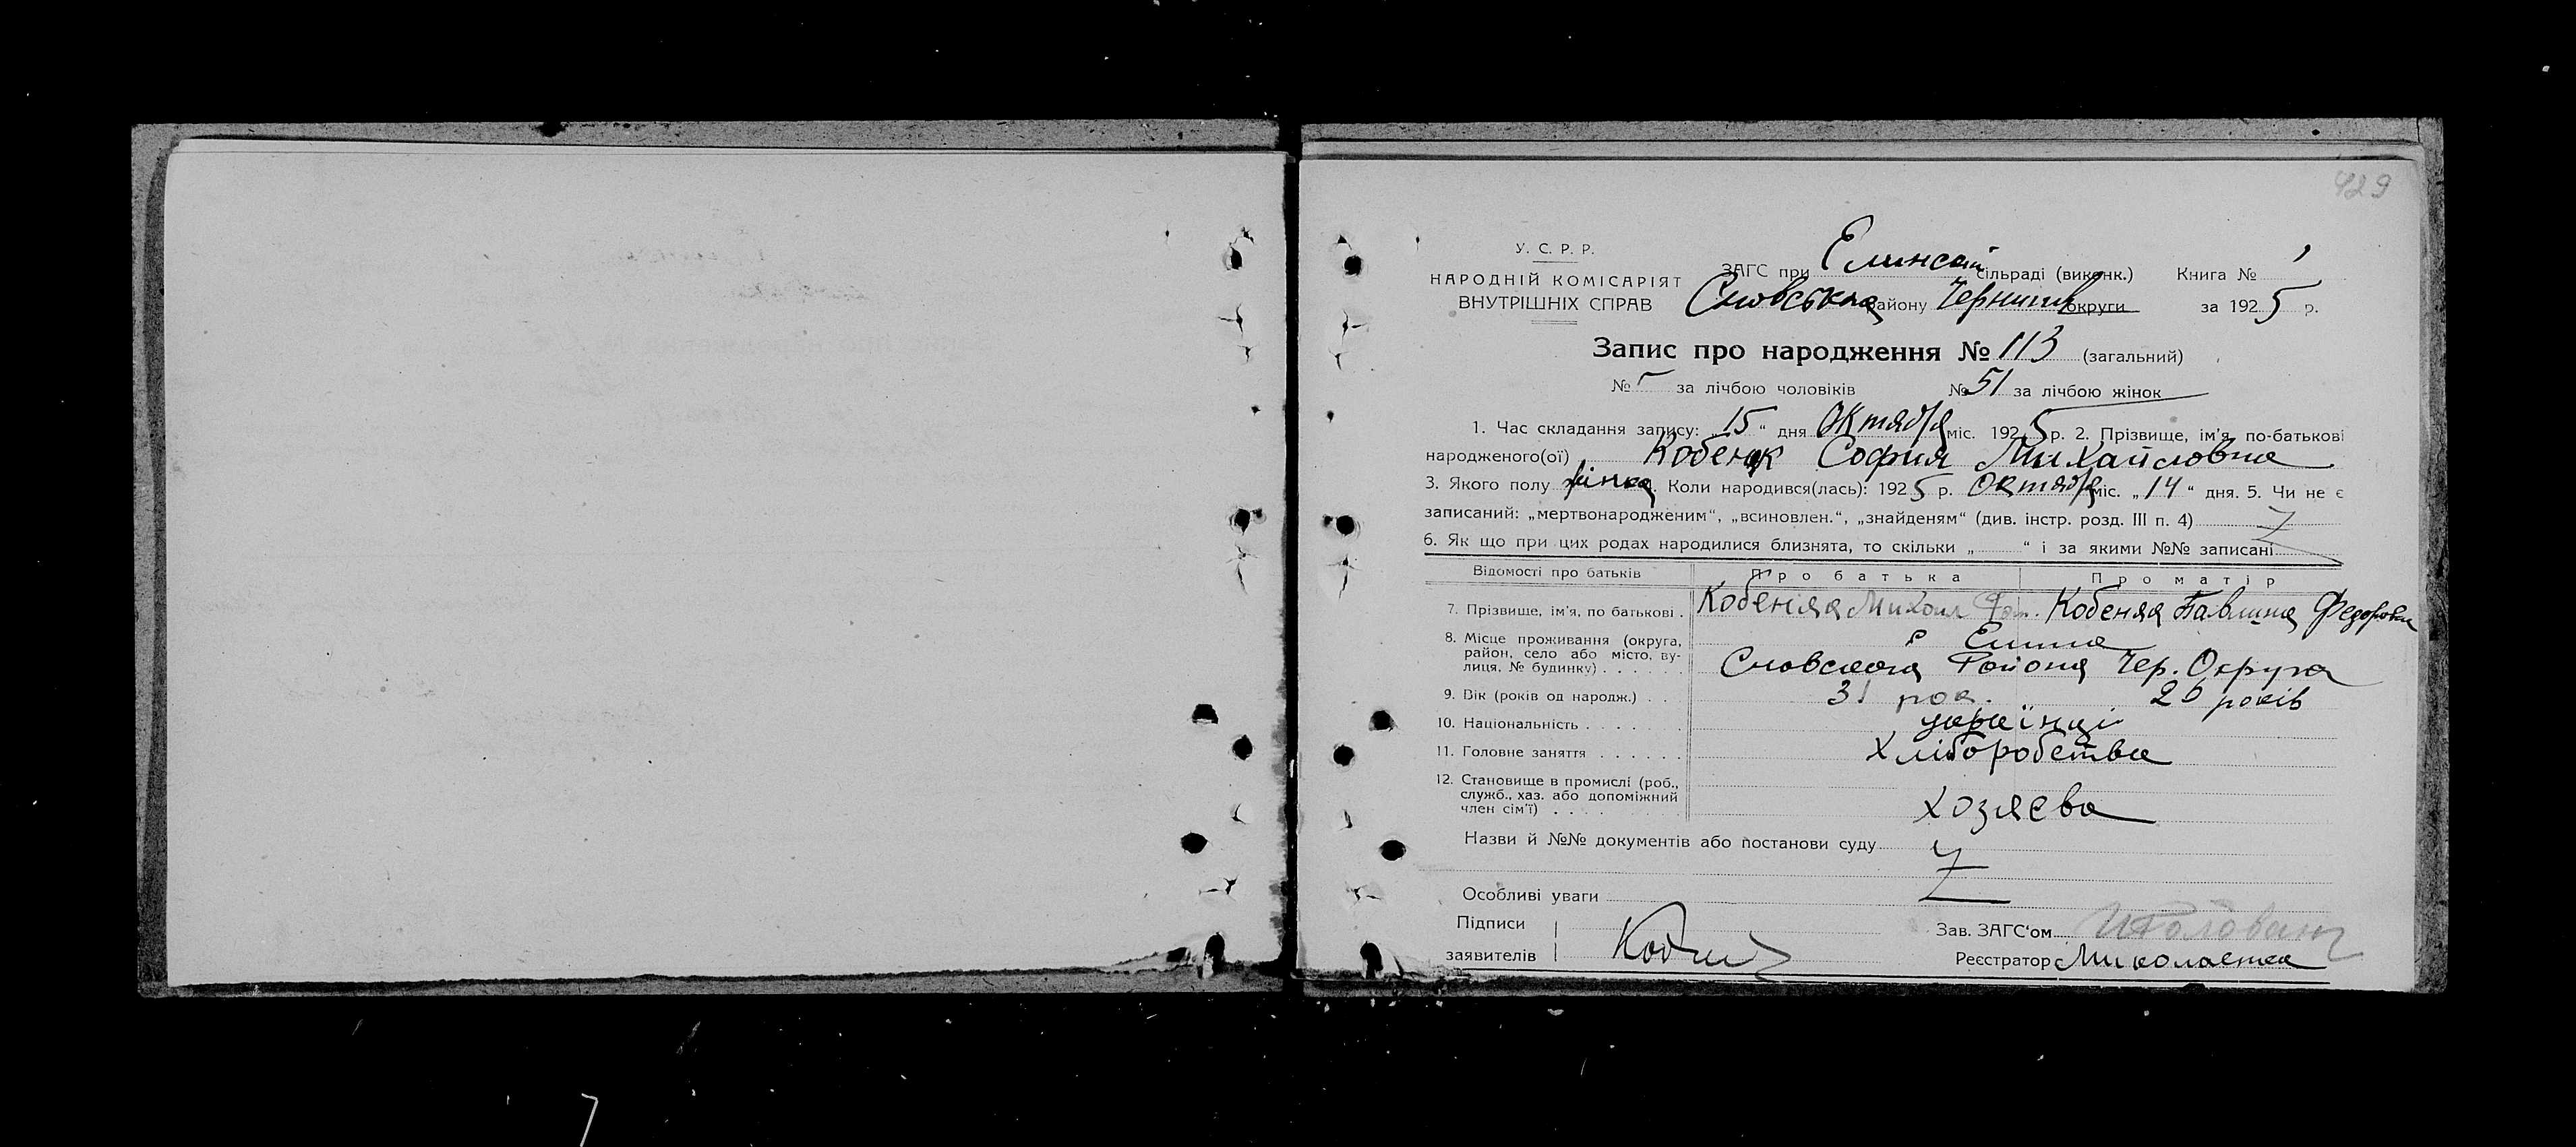 429
У. С. Р. Р.
НАРОДНІЙ КОМІСАРІЯТ
ВНУТРІШНІХ СПРАВ
ЗАГС при Елинской сільраді (виконк.) Книга № 1
Сновська району Черниг округи за 1925 р.
Запис про народження № 113 (загальний)
№ за лічбою чоловіків № 51 за лічбою жінок
1. Час складання запису: „15“ дня Октября міс. 1925 р. 2. Прізвище, ім'я, по-батькові
народженого(ої) Кобеняк София Михайловна
3. Якого полу жінка. Коли народився(лась): 1925 р. Октября міс. „14“ дня. 5. Чи не є
записаний: „мертвонародженим“, „всиновлен.“, „знайденям“ (див. інстр. розд. III п. 4)
6. Як що при цих родах народилися близнята, то скільки „ “ і за якими №№ записані
Відомості про батьків Про батька Про матір
7. Прізвище, ім'я, по батькові . Кобеняа Михаил Кобеняа Павлина Федоровн
8. Місце проживання (округа, район, село або місто, вулиця, № будинку) . . . . . . с Елина
Сновского Района Чер. Округа
9. Вік (років од народж.) . . 31 рок. 26 років
10. Національність . . . . . . українці
11. Головне заняття . . . . . . Хліборобства
12. Становище в промислі (роб., служб., хаз. або допоміжний член сім'ї) . . . . хозяєва
Назви й №№ документів або постанови суду
Особливі уваги
Підписи
заявителів
Зав. ЗАГС'ом
Реєстратор Миколаенка